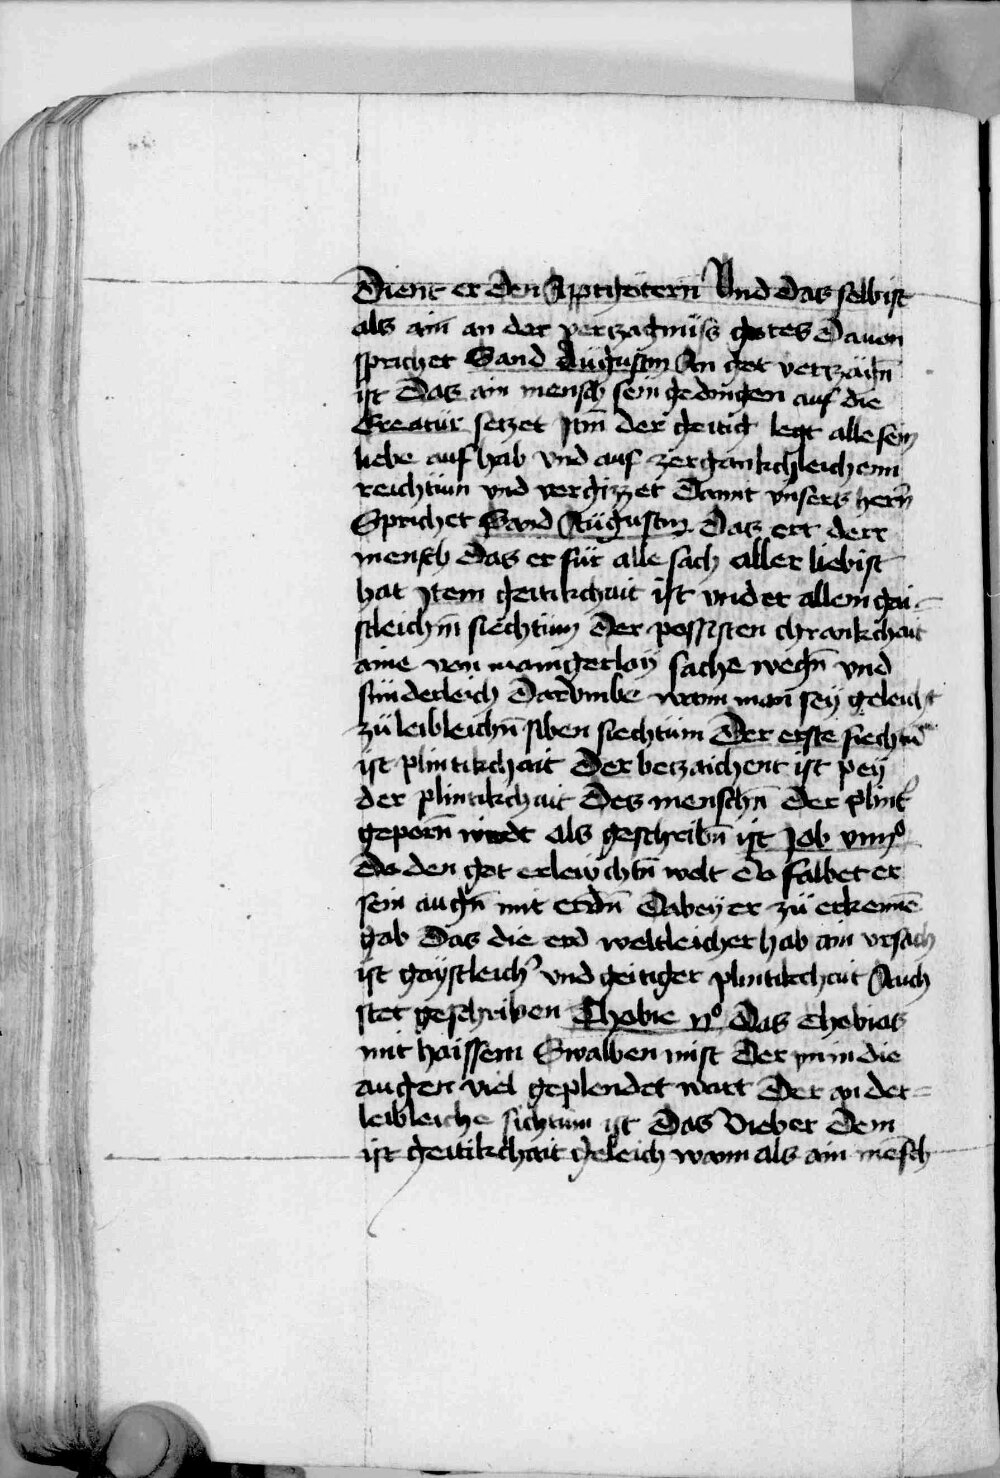 Dient er den Apptgötern Vnd das selb ist
als ain an der verczagnüss gotes Dauon
sprichet Sand Augustin An got verzäihn̄
ist Das ain mensch sein gedingen auf die
Creatür seczet Itm̄ der geitig legt alle sein
liebe auf hab vnd auf zergankchleichenn
reichtüm vnd vergizzet Damit vnsers hern̄
Sprichet Sand Augustin Das ert derr
mensch Das er für alle sach aller liebist
hat Item geitikchait ist vnder allem gai-
stleichm̄ siechtüm Der possisten chrankchait
aine von manigerlay sache wegn̄ vnd
sunderleich Darvmbe wann man sey geleicht
zü leibleichn̄ siben siechtüm Der erste siechtū
ist plintikchait Der beczaichent ist pey
der plintikchait Des menschn̄ Der plint
geporn̄ wirdt als geschribn̄ ist Joh viiijº
Do den got erlewchtn̄ wolt Do salbet er
sein augn̄ mit erdn̄ Dabey er zü erkennē
gab Das die erd weltleicher hab ain vrsach
ist gaystleich' vnd geitiger plintikchait Auch
stet geschriben Thobie ijº Das Thobias
mit haissem Swalben mist Der im in die
augen viel geplendet wart Der ander-
leibleiche sichtum ist Das Vieber Dem
ist geitikchait geleich wann als ain mēsch